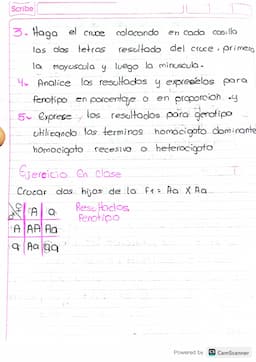 Scribe
3. Haga el cruce colocando en cada casilla
las dos letras resultado del cruce, primero
la mayuscula y luego la minuscula.
4. Analice los resultados y expreselos para
Fenotipo en porcentaje o en proporcion y
5. Exprese los resultados para genotipo
utilizando los terminos homocigoto dominante
homocigoto recesivo o heterocigoto
Ejercicio En clase
Cruzar dos hijos de la F1 = Aa X Aa
A a Resultados
A AA Aa Fenotipo
a Aa aa
Powered by CS CamScanner